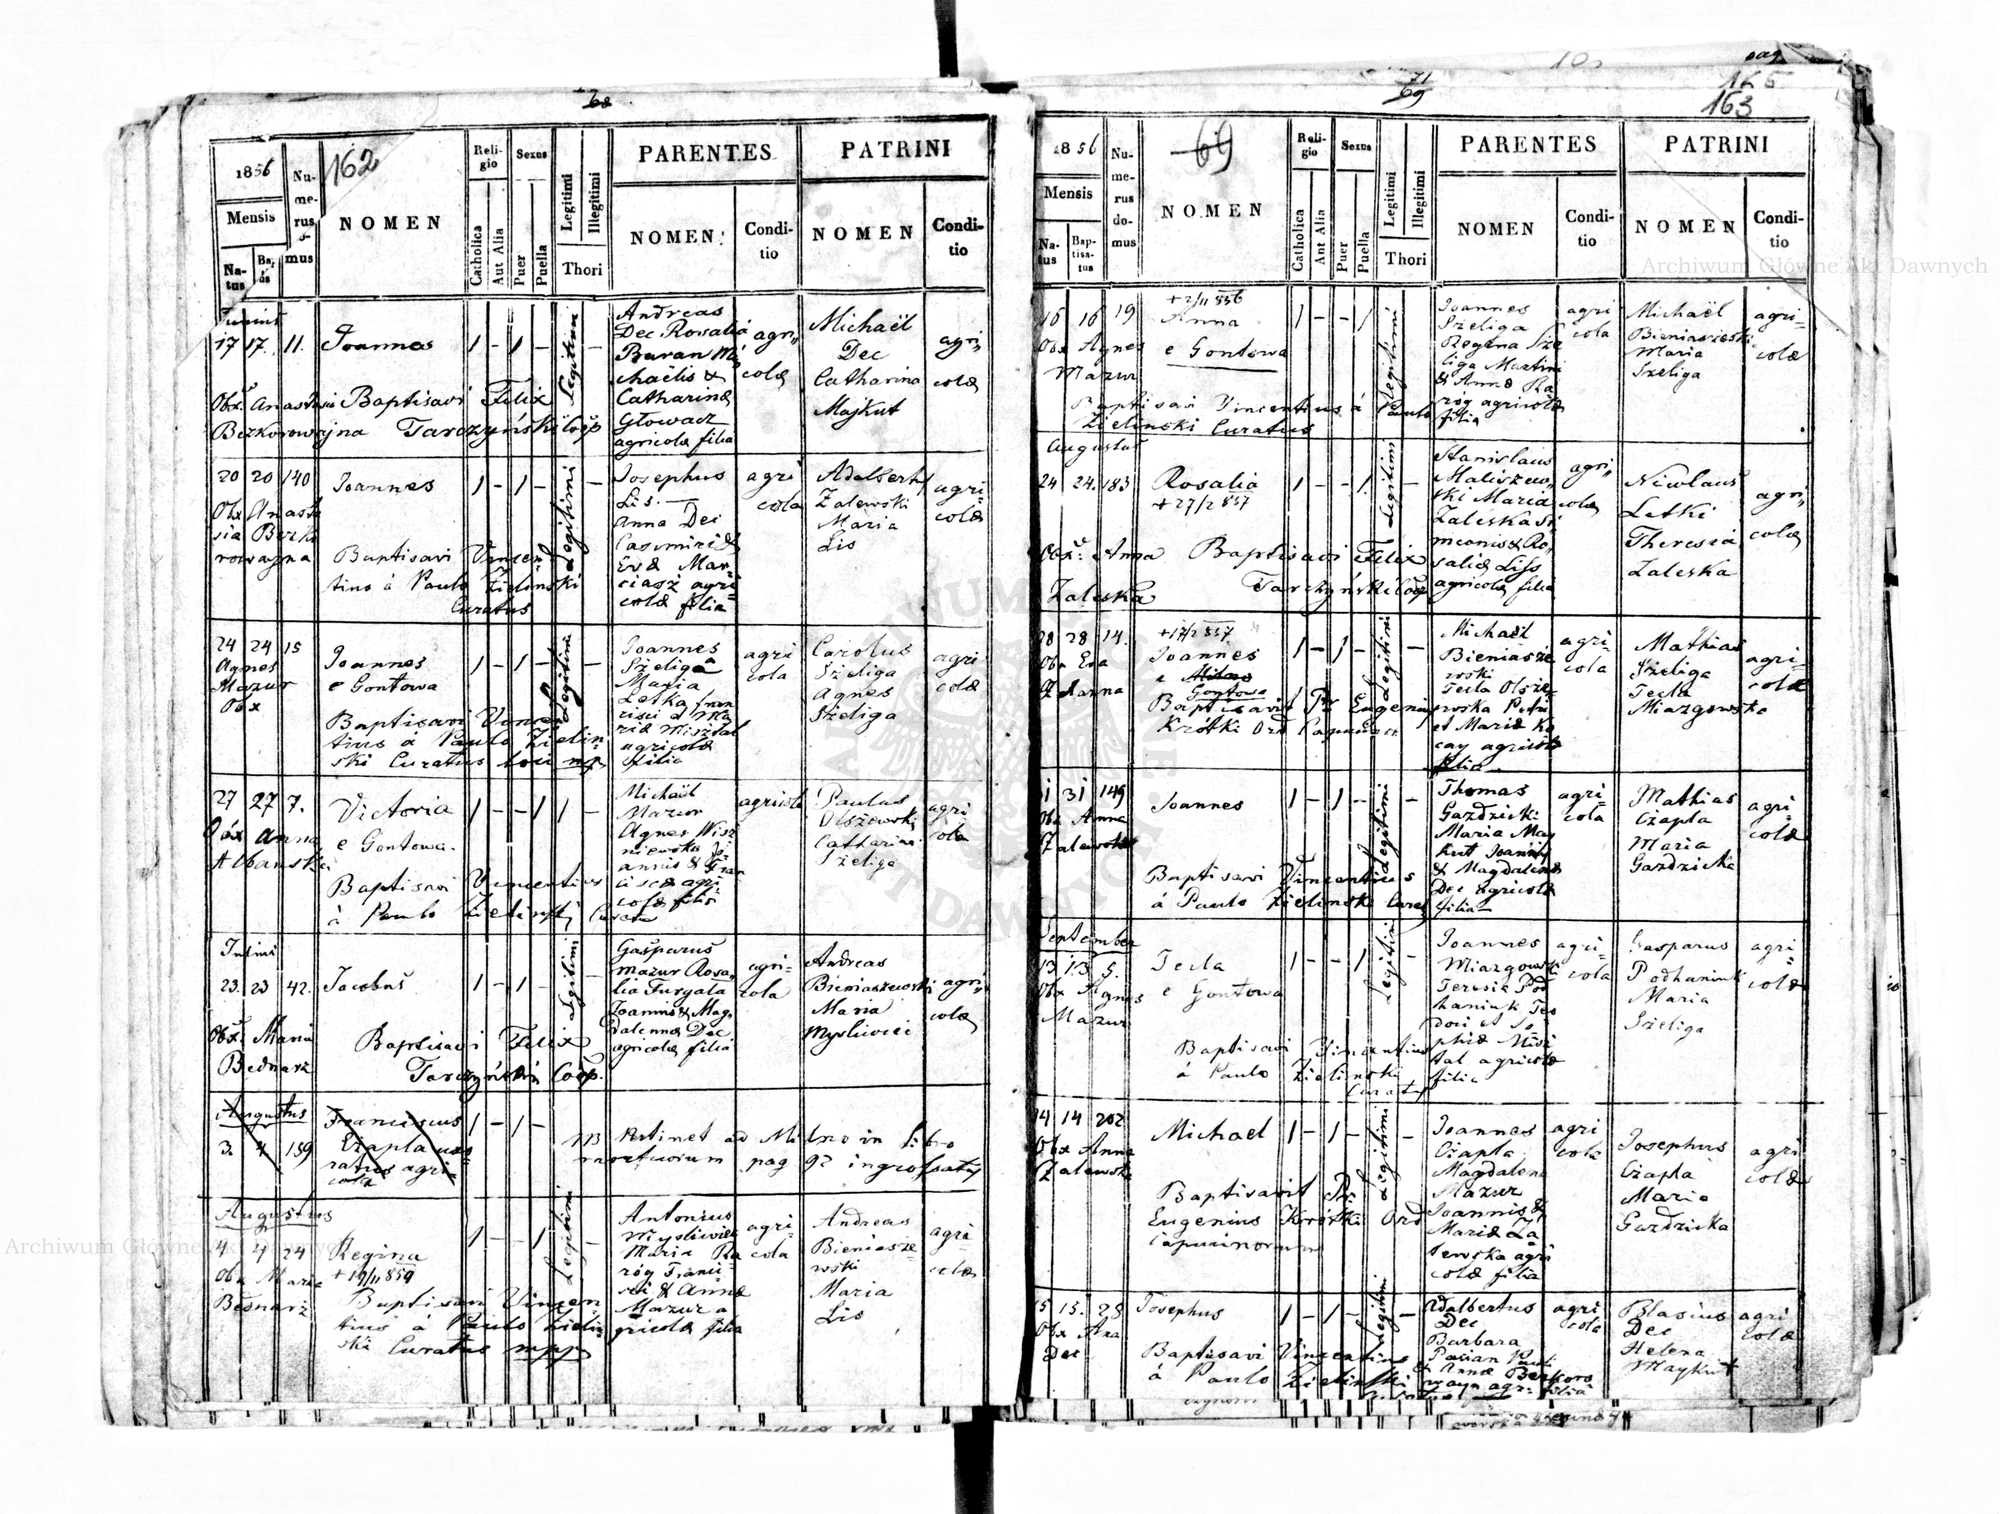 68
162
1856
Mensis
Na-
tus
Nu-
me-
rus
mus
NOMEN
Reli-
gio
Catholica
Aut Alia
Sexus
Puer
Puella
Legitimi
Illegitimi
Thori
PARENTES
NOMEN
Condi-
tio
PATRINI
NOMEN
Condi-
tio
17 17. 11. Joannes 1 - 1 - Legitimi -
Andreas
Dec Rosalia
Baran Mi
chaëlis &
Catharinæ
Głowacz
agricolæ filia
agri„
colæ
Michaël
Dec
Catharina
Majkut
agri„
colæ
Baptisavi Felix
Bezkorowajna Tarczyński Coop
20 20 140 Joannes 1 - 1 - Legitimi -
Josephus
Lis
Anna Dec
Casimiri &
Evæ Mar-
ciasz agri
colæ filia
agri
cola
Adalbert
Zalewski
Maria
Lis
agri-
colæ
Obx Anasta
sia Bezko
rowajna
Baptisavi Vincen
tius à Paulo Zieliński
Curatus
24 24 15 Joannes
e Gontowa 1 - 1 - Legitimi -
Agnes
Mazur
Obx
Joannes
Szeliga
Maria
Letka fran
cisci & Ma
riæ Misztal
agricolæ
filia
agri
cola
Carolus
Szeliga
Agnes
Szeliga
agri
colæ
Baptisavi Vincen
tius à Paulo Zielin-
ski Curatus
27 27 7. Victoria
e Gontowa. 1 - - 1 1 -
Obx Anna
Albańska
Michaël
Mazur
Agnes Wisz
niewska Jo
annis & Fran
ciscæ agri
colæ filia
agricola
Paulus
Olszewski
Catharina
Szeliga
agri
colæ
Baptisavi Vincentius
à Paulo Zieliński Curatus
Julius
23. 23 42. Jacobus 1 - 1 - Legitimi -
Gasparus
Mazur Rosa
lia Furgala
Joannis & Mag-
dalenæ Dec
agricolæ filia
agri-
cola
Andreas
Bieniaszewski
Maria
Mysliwiec
agri„
colæ
Obx. Maria
Bednarz
Baptisavi Felix
Tarczyński Coop.
Augustus
3. 4 159 Franciscus
Czapla
agri-
cola 1 - 1 -
Pertinet ad Milno in libro
mortuorum pag 92
Augustus
4 4 24 Regina 1 - - 1 - Legitimi
Obx Maria
Bednarz
Antonius
Mysliwiec
Maria Ra
róg Franci-
sci & Annæ
Mazur a
gricolæ filia
agri
cola
Andreas
Bieniasze-
wski
Maria
Lis
agri-
colæ
Baptisavi Vincen-
tius à Paulo Zieliń
ski Curatus mpp
71
69
pag
165
163
1856
Mensis
Na-
tus
Bap-
tisa-
tus
Nu-
me-
rus
do-
mus
69
NOMEN
Reli-
gio
Catholica
Aut Alia
Sexus
Puer
Puella
Legitimi
Illegitimi
Thori
PARENTES
NOMEN
Condi-
tio
PATRINI
NOMEN
Condi-
tio
16 16 19 + 2/11 856
Anna
e Gontowa 1 - - 1 Legitimi
Obx Agnes
Mazur
Joannes
Szeliga
Regina Sze
liga Martini
& Annæ Ra
róg agricolæ
filia
agri
cola
Michaël
Bieniaszewski
Maria
Szeliga
agri-
colæ
Baptisavi Vincentius à Paulo
Zieliński Curatus
Augustus
24 24. 183 Rosalia
+ 27/2 857 1 - - 1 Legitimi -
Stanislaus
Maliszew-
ski Maria
Zaleska Si
meonis & Ro-
saliæ Liss
agricolæ filia
agri„
cola
Nicolaus
Letki
Theresia
Zaleska
agri„
colæ
Obx. Anna
Zaleska
Baptisavi Felix
Tarczyński Coop
28 28 14. + 17/2 857.
Joannes
e Milno
Gontowa 1 - 1 - Legitimi -
Obx Eva
Michaël
Bieniasze
wski
Tecla Olsze-
wska Petri
et Mariæ Ko
cay agricolæ
filia
agri-
cola
Mathias
Szeliga
Tecla
Miazgowska
agri-
colæ
Baptisavit Pr Eugenius
Krótki Ord Capucinor
31 149 Joannes 1 - 1 - Legitimi -
Obx Anna
Zalewska
Thomas
Gazdzicki
Maria May
kut Joannis
& Magdalenæ
Dec agricolæ
filia
agri-
cola
Mathias
Czapla
Maria
Gazdzicka
agri-
colæ
Baptisavi Vincentius
à Paulo Zieliński Curat
September
13 13 5. Tecla
e Gontowa 1 - - 1 Legitimi -
Obx Agnes
Mazur
Joannes
Miazgowski
Teresia Pod
haniuk Teo
dori et So
phiæ Misz
tal agricolæ
filia
agri-
cola
Gasparus
Podhaniuk
Maria
Szeliga
agri-
colæ
Baptisavi Vincentius
à Paulo Zieliński
Curatus
14 14 202 Michael 1 - 1 - Legitimi -
Obx Anna
Zalewska
Joannes
Czapla
Magdalena
Mazur
Joannis &
Mariæ Za
lewska agri
colæ filia
agri
cola
Josephus
Czapla
Maria
Gazdzicka
agri-
colæ
Baptisavit Pr.
Eugenius Krótki Ord
Capucinorum
15 15. 28 Josephus 1 - 1 - Legitimi -
Obx Ana
Dec
Adalbertus
Dec
Barbara
Pasian Pauli
& Annæ Bezkoro
wayn agri- filia
agri
cola
Blasius
Dec
Helena
Maykut
agri
colæ
Baptisavi Vincentius
à Paulo Zieliński
Archiwum Główne Akt Dawnych
Archiwum Główne Akt Dawnych
ARCHIWUM GŁÓWNE AKT DAWNYCH